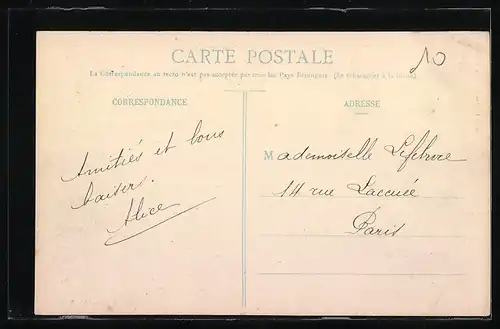 CARTE POSTALE
10
La Correspondance au recto n'est pas acceptée par tous les Pays Étrangers. (Se renseigner à la Poste)
CORRESPONDANCE
ADRESSE
Amitiés et bons
baisers.
Alice
Mademoiselle Lefebvre
14 rue Lacuée
Paris